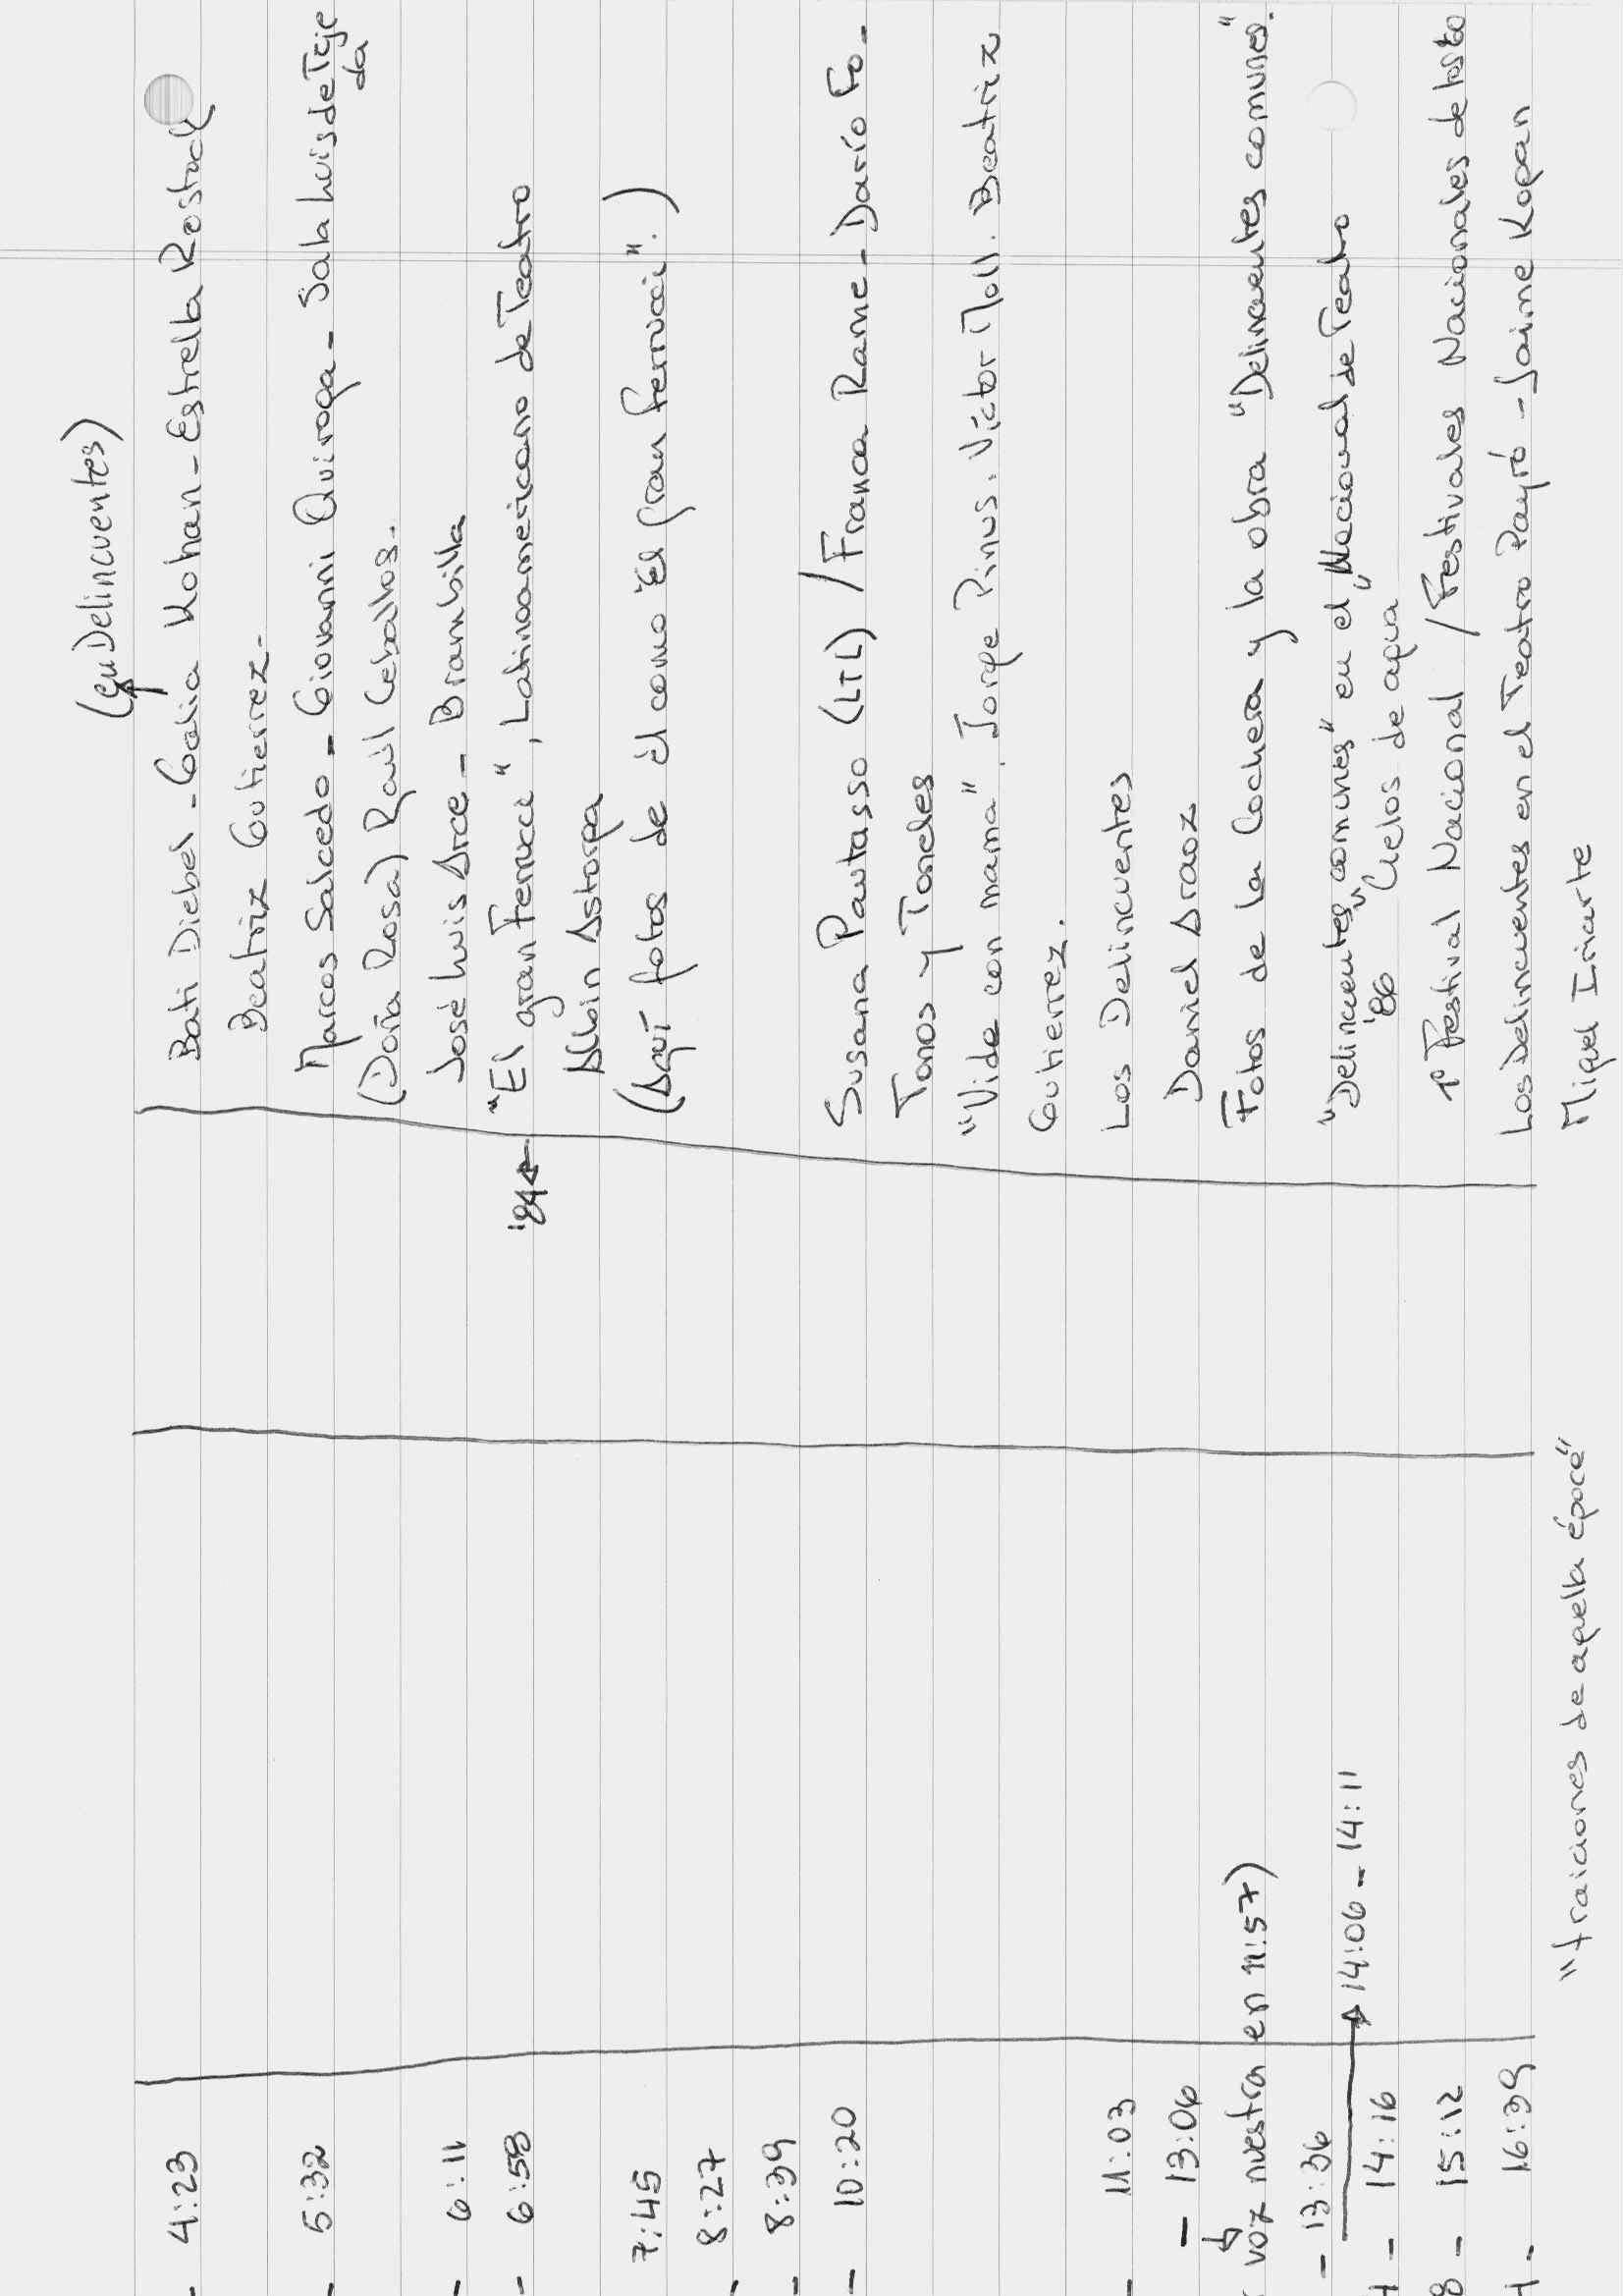 (en Delincuentes)
- 4:23 Bati Diebel - Galia Kohan - Estrella Rostock
Beatriz Gutierrez.
- 5:32 Marcos Salcedo - Giovanni Quiroga - Sala Luis de Teje
da
(Doña Rosa) Raúl Ceballos.
- 6:11 José Luis Arce - Brambilla
- 6:58 '84 "El gran Ferrucci", Latinoamericano de Teatro
Albin Astorga
7:45 (Aquí fotos de él como "El gran Ferrucci".)
- 8:27
- 8:39
- 10:20 Susana Pautasso (LTL) / Franca Rame - Darío Fo -
Tonos y Toneles
"Vide con mama". Jorge Pinus. Víctor Moll. Beatriz
Gutierrez.
- 11:03 Los Delincuentes
- 13:06 Daniel Araoz
voz nuestra en 11:57) Fotos de la Cochera y la obra "Delincuentes comunes".
- 13:36 14:06 - 14:11 "Delincuentes comunes" en el "Nacional de Teatro
- 14:16 '86 "Cielos de agua
- 15:12 1º Festival Nacional / Festivales Nacionales de los 80
- 16:39 Los Delincuentes en el Teatro Payró - Jaime Kogan
"traiciones de aquella época" Miguel Iriarte